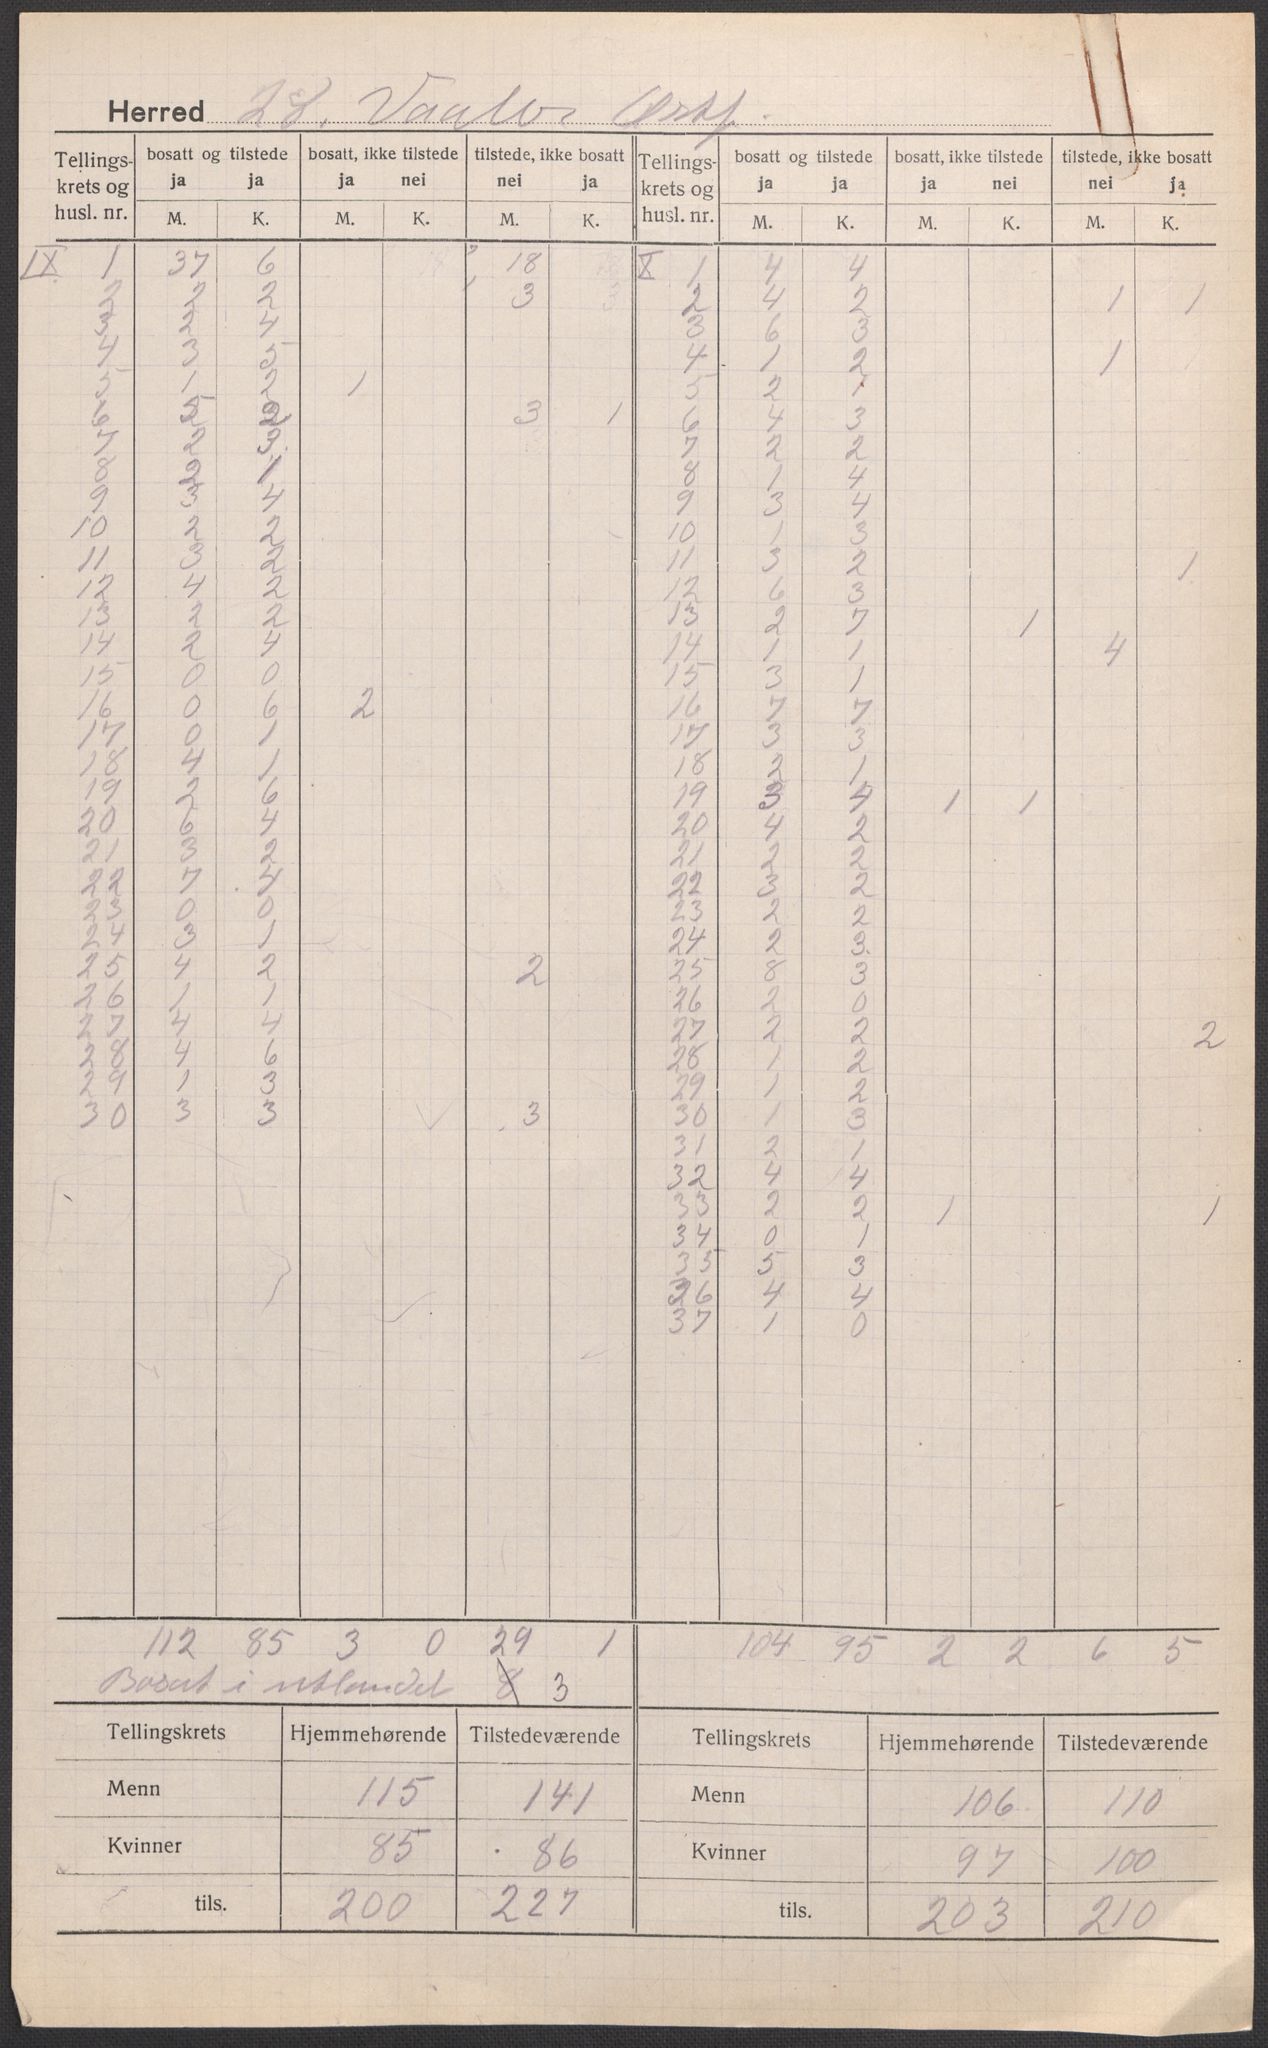 Herred 28. Vaaler Østf.
Tellings-krets og husl. nr. | bosatt og tilstede ja M. | ja K. | bosatt, ikke tilstede ja M. | nei K. | tilstede, ikke bosatt nei M. | ja K. | Tellings-krets og husl. nr. | bosatt og tilstede ja M. | ja K. | bosatt, ikke tilstede ja M. | nei K. | tilstede, ikke bosatt nei M. | ja K.
IX 1 | 37 | 6 | | | 18 | | X 1 | 4 | 4 | | | |
2 | 2 | 2 | | | 3 | | 2 | 4 | 2 | | | 1 | 1
3 | 2 | 4 | | | | | 3 | 6 | 3 | | | |
4 | 3 | 5 | | | | | 4 | 1 | 2 | | | 1 |
5 | 1 | 2 | 1 | | | | 5 | 2 | 1 | | | |
6 | | 2 | | | 3 | 1 | 6 | 4 | 3 | | | |
7 | 2 | 3 | | | | | 7 | 2 | 2 | | | |
8 | 2 | 1 | | | | | 8 | 1 | 4 | | | |
9 | 3 | 4 | | | | | 9 | 3 | 4 | | | |
10 | 2 | 2 | | | | | 10 | 1 | 3 | | | |
11 | 3 | 2 | | | | | 11 | 3 | 2 | | | | 1
12 | 4 | 2 | | | | | 12 | 6 | 3 | | | |
13 | 2 | 2 | | | | | 13 | 2 | 7 | | 1 | |
14 | 2 | 4 | | | | | 14 | 1 | 1 | | | 4 |
15 | 0 | 0 | | | | | 15 | 3 | 1 | | | |
16 | 0 | 6 | 2 | | | | 16 | 7 | 7 | | | |
17 | 0 | 1 | | | | | 17 | 3 | 3 | | | |
18 | 4 | 1 | | | | | 18 | 2 | 1 | | | |
19 | 2 | 6 | | | | | 19 | 3 | 4 | 1 | 1 | |
20 | 6 | 4 | | | | | 20 | 4 | 2 | | | |
21 | 3 | 2 | | | | | 21 | 2 | 2 | | | |
22 | 7 | 4 | | | | | 22 | 3 | 2 | | | |
23 | 0 | 0 | | | | | 23 | 2 | 2 | | | |
24 | 3 | 1 | | | | | 24 | 2 | 3 | | | |
25 | 4 | 2 | | | 2 | | 25 | 8 | 3 | | | |
26 | 1 | 1 | | | | | 26 | 2 | 0 | | | |
27 | 4 | 4 | | | | | 27 | 2 | 2 | | | | 2
28 | 4 | 6 | | | | | 28 | 1 | 2 | | | |
29 | 1 | 3 | | | | | 29 | 1 | 2 | | | |
30 | 3 | 3 | | | 3 | | 30 | 1 | 3 | | | |
31 | 2 | 1
32 | 4 | 4
33 | 2 | 2 | 1 | | | 1
34 | 0 | 1
35 | 5 | 3
36 | 4 | 4
37 | 1 | 0
112 | 85 | 3 | 0 | 29 | 1 | | 104 | 95 | 2 | 2 | 6 | 5
Bosat i utlandet 8 3
Tellingskrets | Hjemmehørende | Tilstedeværende | Tellingskrets | Hjemmehørende | Tilstedeværende
Menn | 115 | 141 | Menn | 106 | 110
Kvinner | 85 | 86 | Kvinner | 97 | 100
tils. | 200 | 227 | tils. | 203 | 210